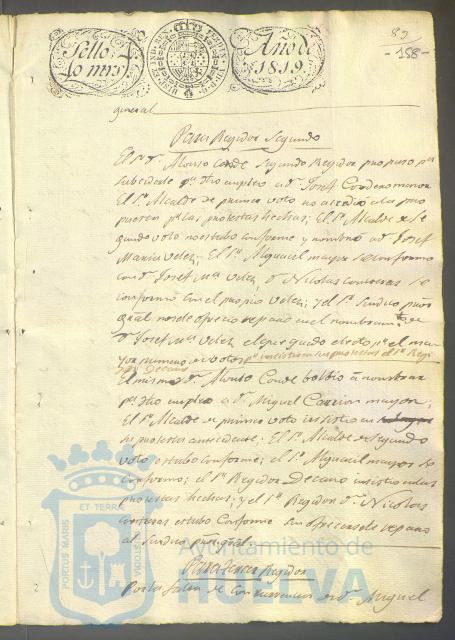 Sello 4º
40 mrs
Año de
1819.
89
-158-
general
Para Regidor Segundo
El Sr. Dn. Alonso Conde Segundo Regidor propuso pa
subcederle pa. dho empleo a Dn. Josef Cordero menor
El Sr. Alcalde de primero voto no accedio a la pro
puesta pr. las protestas hechas; El Sr. Alcalde de Se
gundo voto no estubo conforme y nombró a Dn. Josef
Maria Velez; El Sr. Alguacil mayor se conformo
con Dn. Josef Ma. Velez, Dn. Nicolas Contreras se
conformó con el propio Velez; y el Sr. Sindico
gral no se le ofrecio reparo en el nombramto. de
Dn. Josef Ma. Velez el que quedó electo pr. el ma
yor numero de votos pr. insistir en sus protestas el Sr. Regi
dor Decano
El mismo Dn. Alonso Conde bolbió á nombrar
pa. dho empleo a Dn. Miguel Carrion mayor;
El Sr. Alcalde de primero voto insistio en
la protesta antecedente; El Sr. Alcalde de Segundo
voto estubo conforme; el Sr. Alguacil mayor se
conformó; el Sr. Regidor Decano insistio en las
protestas hechas; y el Sr. Regidor Dn. Nicolas
Contreras estubo conforme sin ofrecersele reparo
al Sindico gral.
Para tercer Regidor
Por Dn. Miguel
PORTUS MARIS
ET TERRAE CUSTODIA
Ayuntamiento de
HUELVA